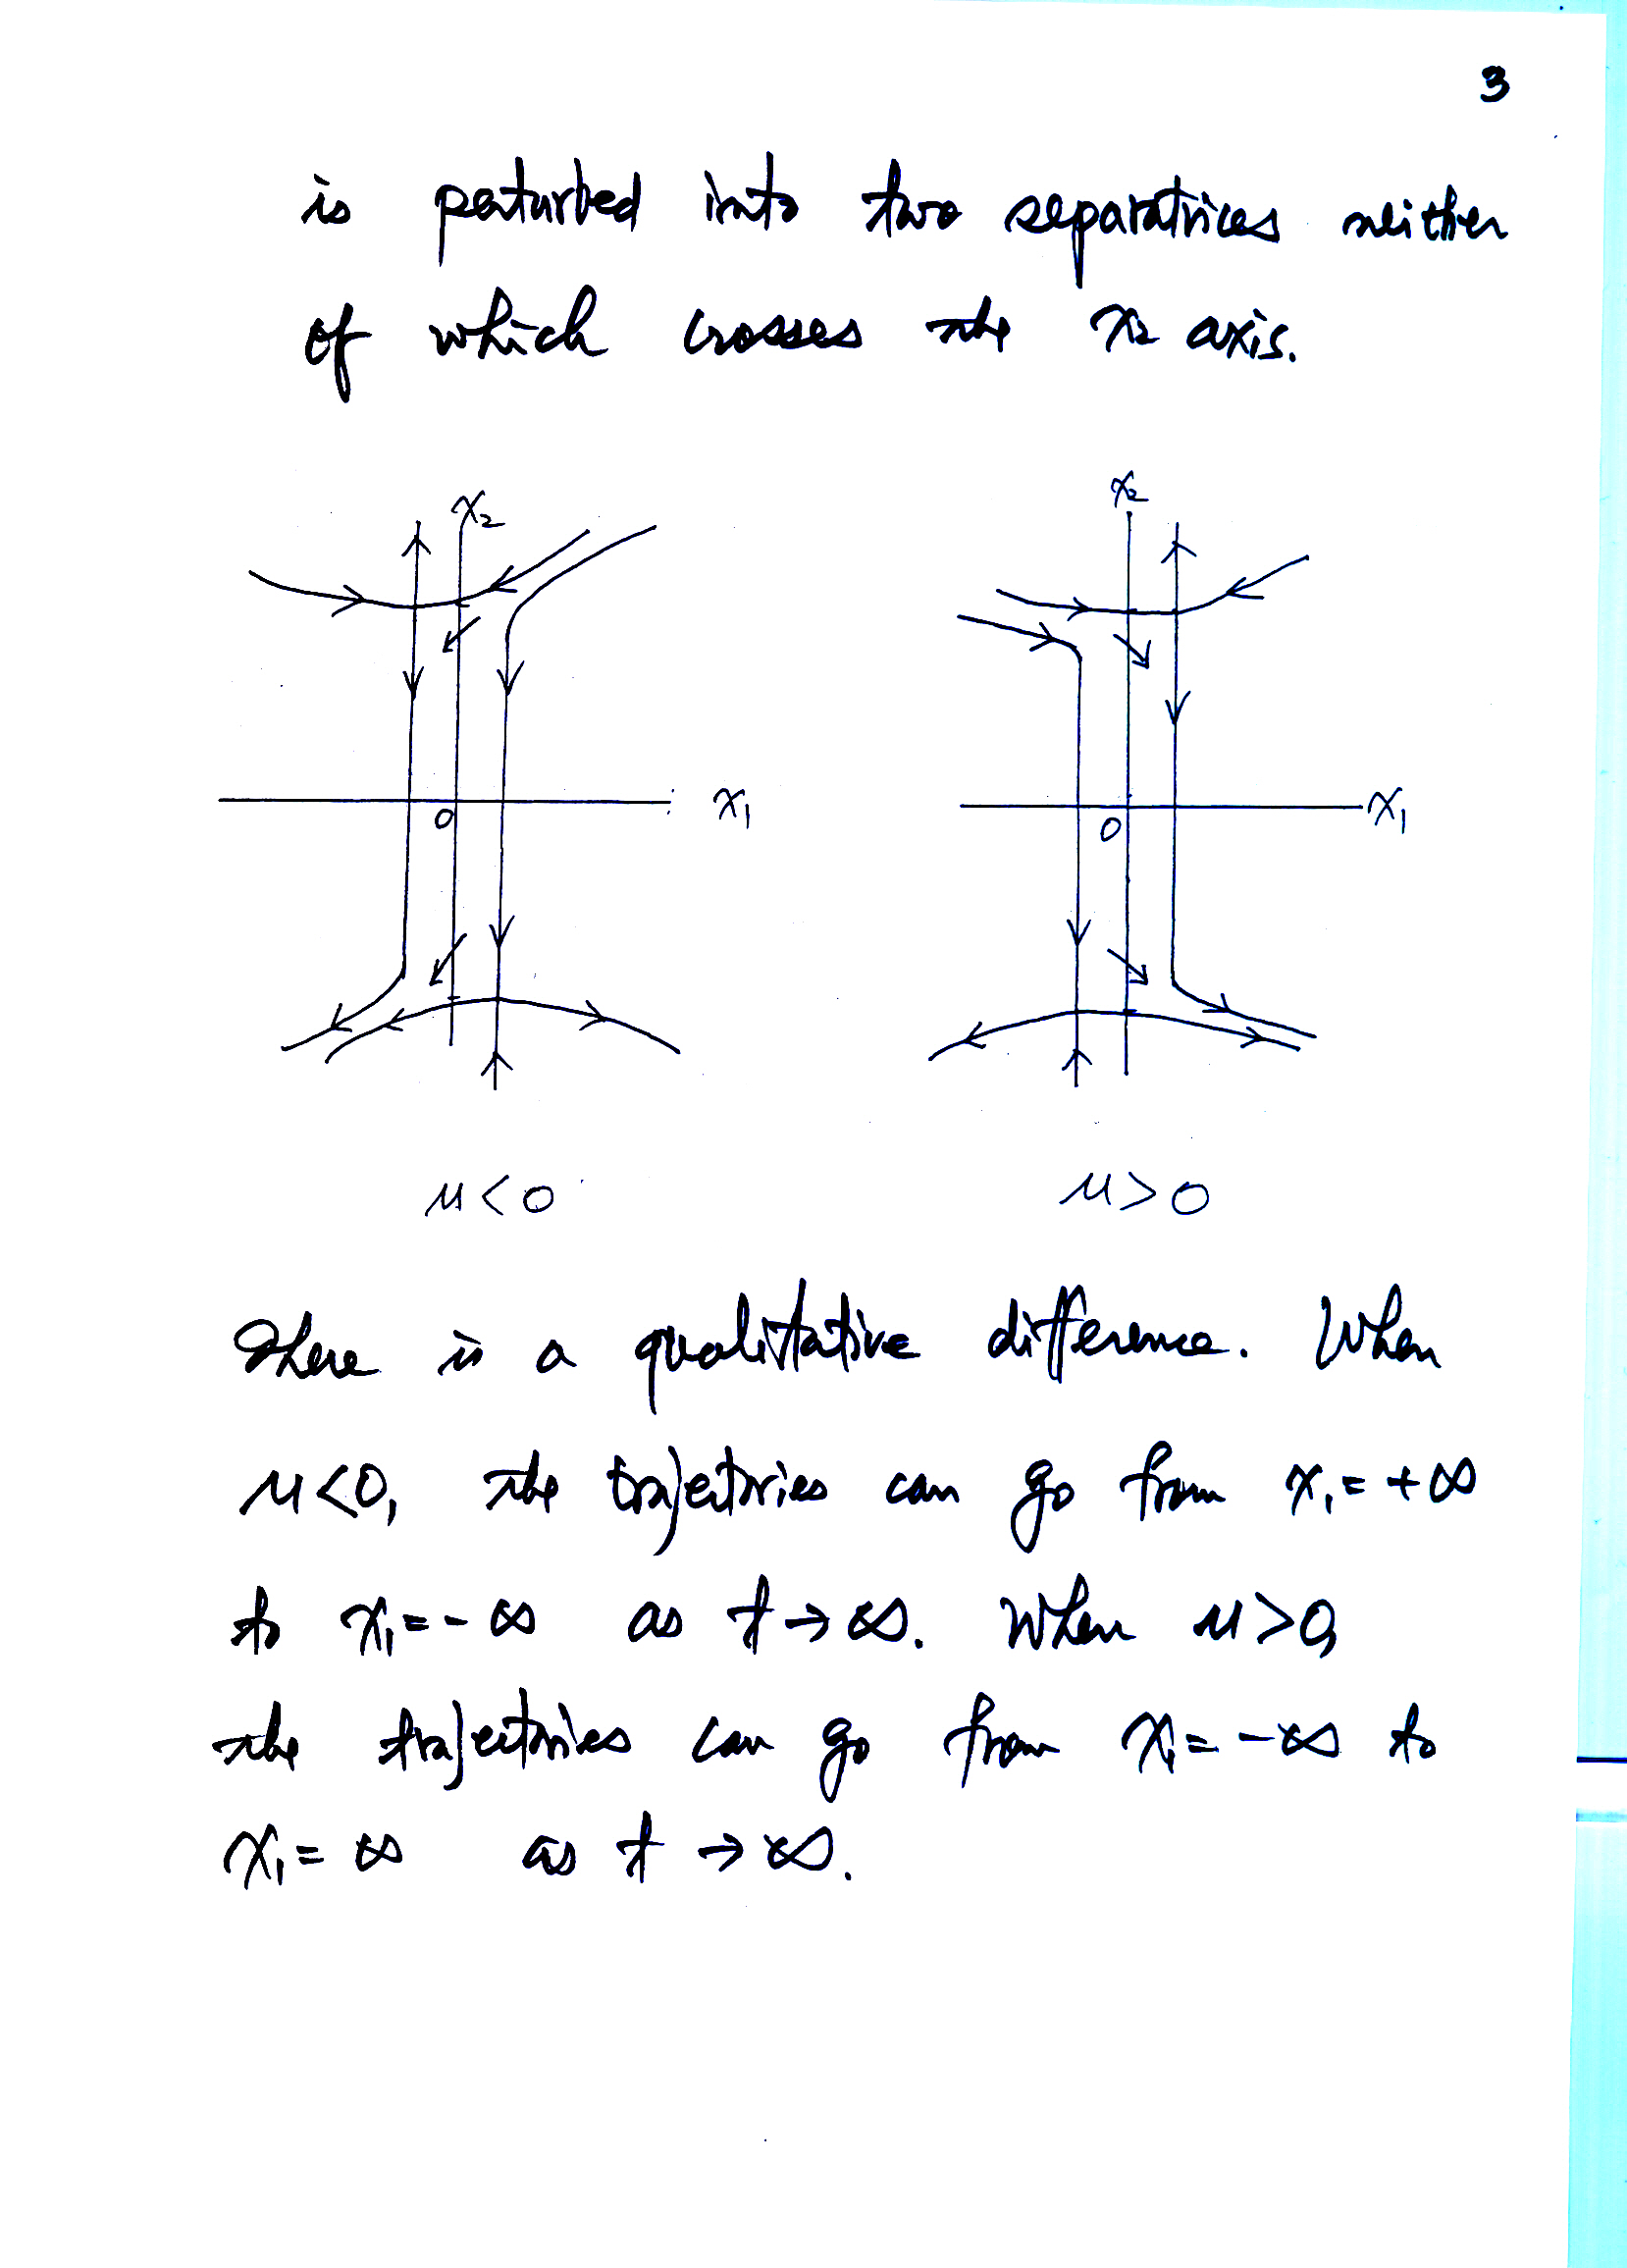 3
is perturbed into two separatrices neither
of which crosses the x₂ axis.
x₂ x₂
0 x₁ 0 x₁
μ<0 μ>0
There is a qualitative difference. When
μ<0, the trajectories can go from x₁=+∞
to x₁=-∞ as t→∞. When μ>0,
the trajectories can go from x₁=-∞ to
x₁=∞ as t→∞.